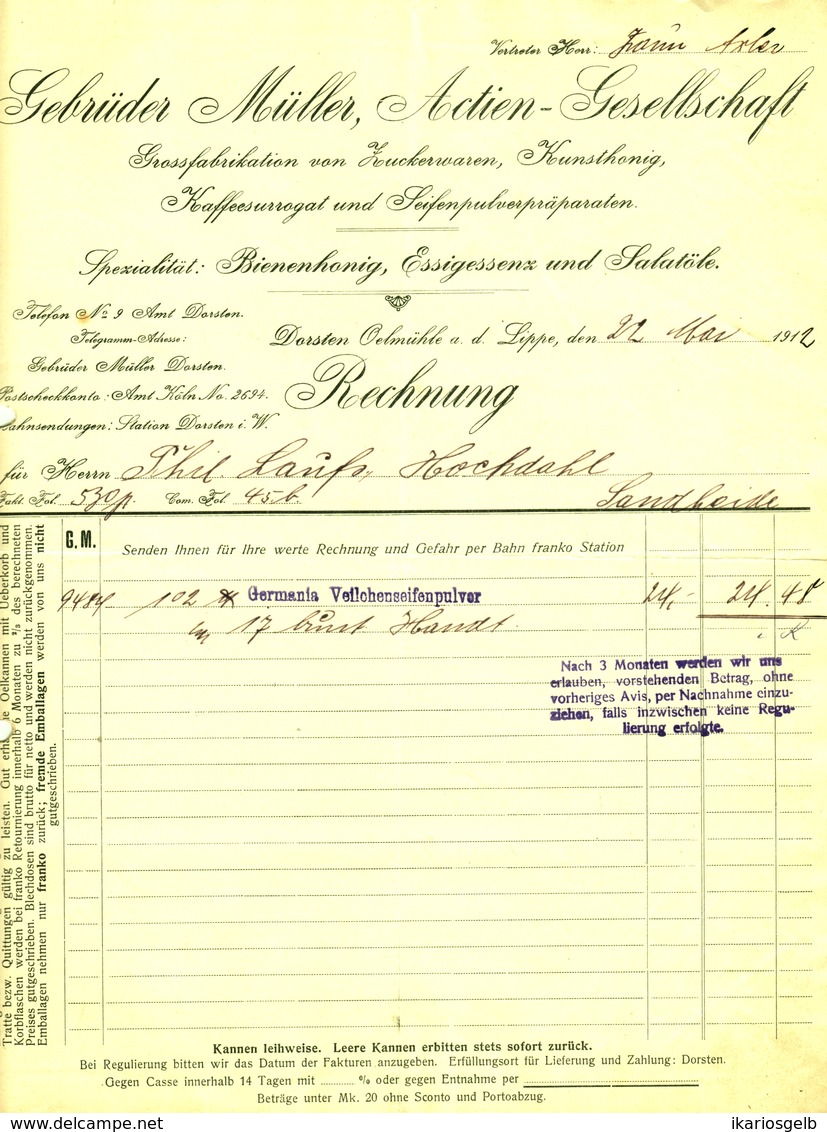 Vertreter Herr:
Gebrüder Müller, Actien-Gesellschaft
Grossfabrikation von Zuckerwaren, Kunsthonig,
Kaffeesurrogat und Seifenpulverpräparaten.
Spezialität: Bienenhonig, Essigessenz und Salatöle.
Telefon No 9 Amt Dorsten.
Telegramm-Adresse:
Gebrüder Müller Dorsten.
Postscheckkonto: Amt Köln No. 2694.
Bahnsendungen: Station Dorsten i. W.
Dorsten Oelmühle a. d. Lippe, den 22 Mai 1912
Rechnung
für Herrn Phil. Laufs, Hochdahl
Fakt. Fol. 530 Com. Fol. 456. Sandheide
G. M.
Senden Ihnen für Ihre werte Rechnung und Gefahr per Bahn franko Station
9484 102 ℔ Germania Veilchenseifenpulver 24,- 24. 48
17 bunt Handt.
Nach 3 Monaten werden wir uns
erlauben, vorstehenden Betrag, ohne
vorheriges Avis, per Nachnahme einzu-
ziehen, falls inzwischen keine Regu-
lierung erfolgte.
Tratte bezw. Quittungen gültig zu leisten. Gut Oelkannen mit Ueberkorb und
Korbflaschen werden bei franko Retournierung innerhalb 6 Monaten zu ²/₃ des berechneten
Preises gutgeschrieben. Blechdosen sind brutto für netto und werden nicht zurückgenommen.
Emballagen nehmen nur franko zurück; fremde Emballagen werden von uns nicht
gutgeschrieben.
Kannen leihweise. Leere Kannen erbitten stets sofort zurück.
Bei Regulierung bitten wir das Datum der Fakturen anzugeben. Erfüllungsort für Lieferung und Zahlung: Dorsten.
Gegen Casse innerhalb 14 Tagen mit % oder gegen Entnahme per
Beträge unter Mk. 20 ohne Sconto und Portoabzug.
ikariosgelb